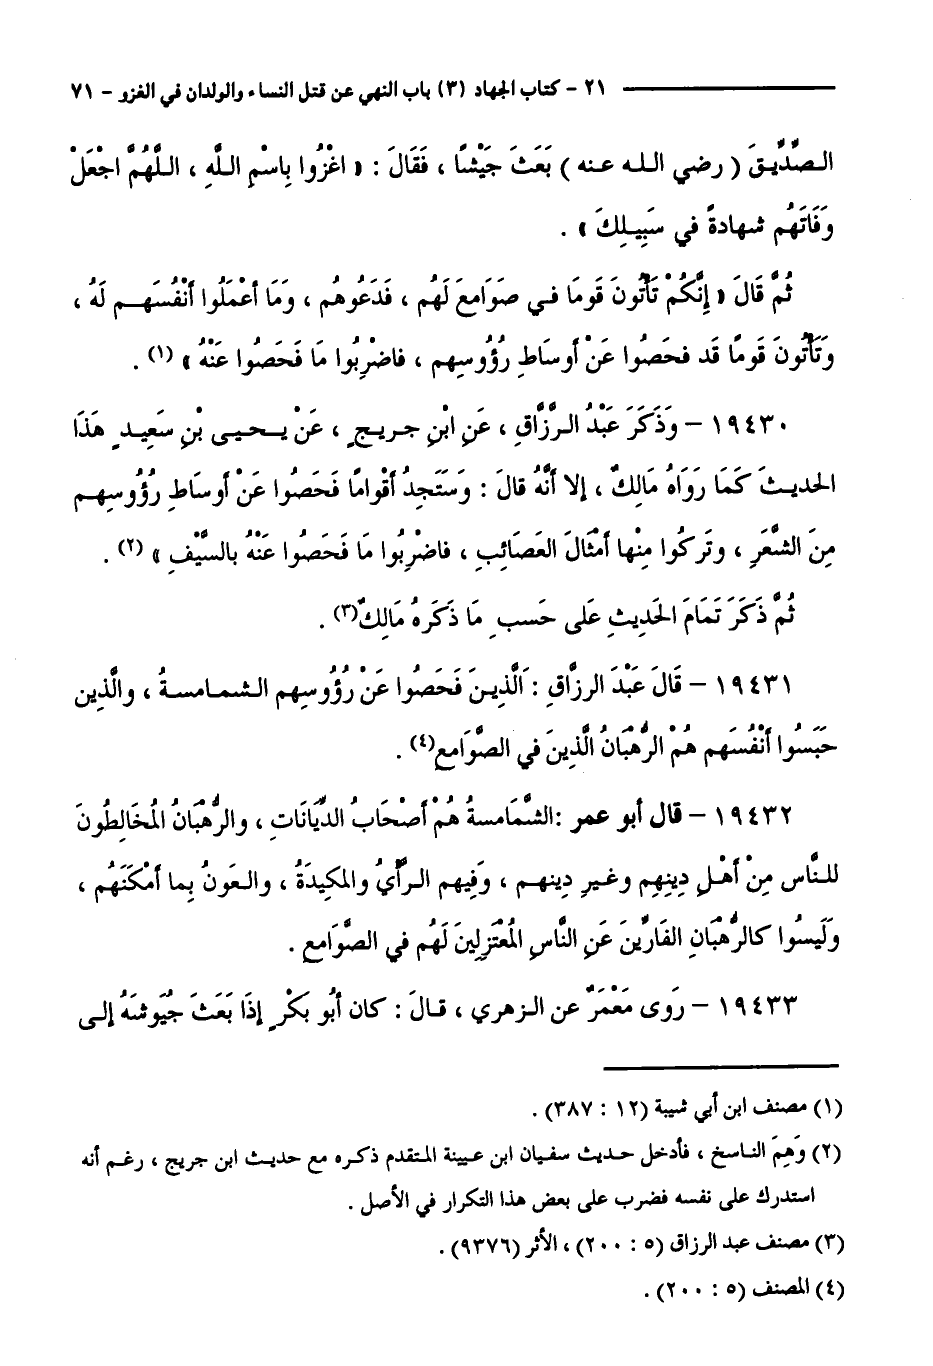 ٢١ - كتاب الجهاد (٣) باب النهي عن قتل النساء والولدان في الغزو - ٧١
الصِّدِّيقَ ( رضي الله عنه ) بَعَثَ جَيْشًا ، فَقَالَ : « اغْزُوا بِاسْمِ اللَّهِ ، اللَّهُمَّ اجْعَلْ
وَفَاتَهُم شهادةً في سَبِيلِكَ » .
ثُمَّ قَالَ « إِنَّكُمْ تَأتُونَ قَومًا في صَوَامعَ لَهُم ، فَدَعُوهُم ، وَمَا أعْمَلُوا أنْفُسَهم لَهُ ،
وَتَأتُونَ قَومًا قَد فحَصُوا عَنْ أوسَاطِ رُؤُوسِهم ، فاضْرِبُوا مَا فَحَصُوا عَنْهُ » (١) .
١٩٤٣٠ - وَذَكَرَ عَبْدُ الرزَّاقِ ، عَنِ ابْنِ جريجٍ ، عَنْ يحيى بْنِ سَعِيدٍ هَذَا
الحديثَ كَمَا رَوَاهُ مَالِكٌ ، إلا أنَّهُ قالَ : وَسَتَجِدُ أقْوامًا فَحَصُوا عَنْ أوسَاطِ رُؤُوسِهم
مِنَ الشَّعَرِ ، وتَركُوا مِنْها أمْثَالَ العَصَائِبِ ، فاضْرِبُوا مَا فَحَصُوا عَنْهُ بالسَّيْفِ » (٢) .
ثُمَّ ذَكَرَ تَمَامَ الحَدِيثِ عَلى حَسبِ مَا ذَكَرهُ مَالِكٌ(٣) .
١٩٤٣١ - قَالَ عَبْدَ الرزَّاقِ : الَّذِينَ فَحَصُوا عَنْ رُؤُوسِهم الشمامسةُ ، والَّذِين
حَبَسُوا أنْفُسَهم هُمْ الرُّهْبَانُ الَّذِينَ في الصَّوَامعِ(٤) .
١٩٤٣٢ - قال أبو عمر :الشمَّامسةُ هُمْ أصْحَابُ الدِّيَانَاتِ ، والرُّهْبَانُ المُخَالِطُونَ
للنَّاس مِنْ أهْلِ دِينِهِم وغيرِ دِينهم ، وَفِيهم الرأيُ والمكِيدَةُ ، والعَونُ بِما أمْكَنَهُم ،
وَلَيسُوا كالرُّهْبَانِ الفَارِّينَ عَنِ النَّاسِ المُعْتَزِلِينَ لَهُم في الصَّوَامعِ .
١٩٤٣٣ - رَوى مَعْمَرٌ عن الزهري ، قالَ : كان أبُو بَكْرٍ إذَا بَعَثَ جُيُوشَهُ إلى
(١) مصنف ابن أبي شيبة (١٢ : ٣٨٧) .
(٢) وَهِمَ الناسخ ، فأدخل حديث سفيان ابن عيينة المتقدم ذكره مع حديث ابن جريج ، رغم أنه
استدرك على نفسه فضرب على بعض هذا التكرار في الأصل .
(٣) مصنف عبد الرزاق (٥ : ٢٠٠) ، الأثر (٩٣٧٦) .
(٤) المصنف (٥ : ٢٠٠) .